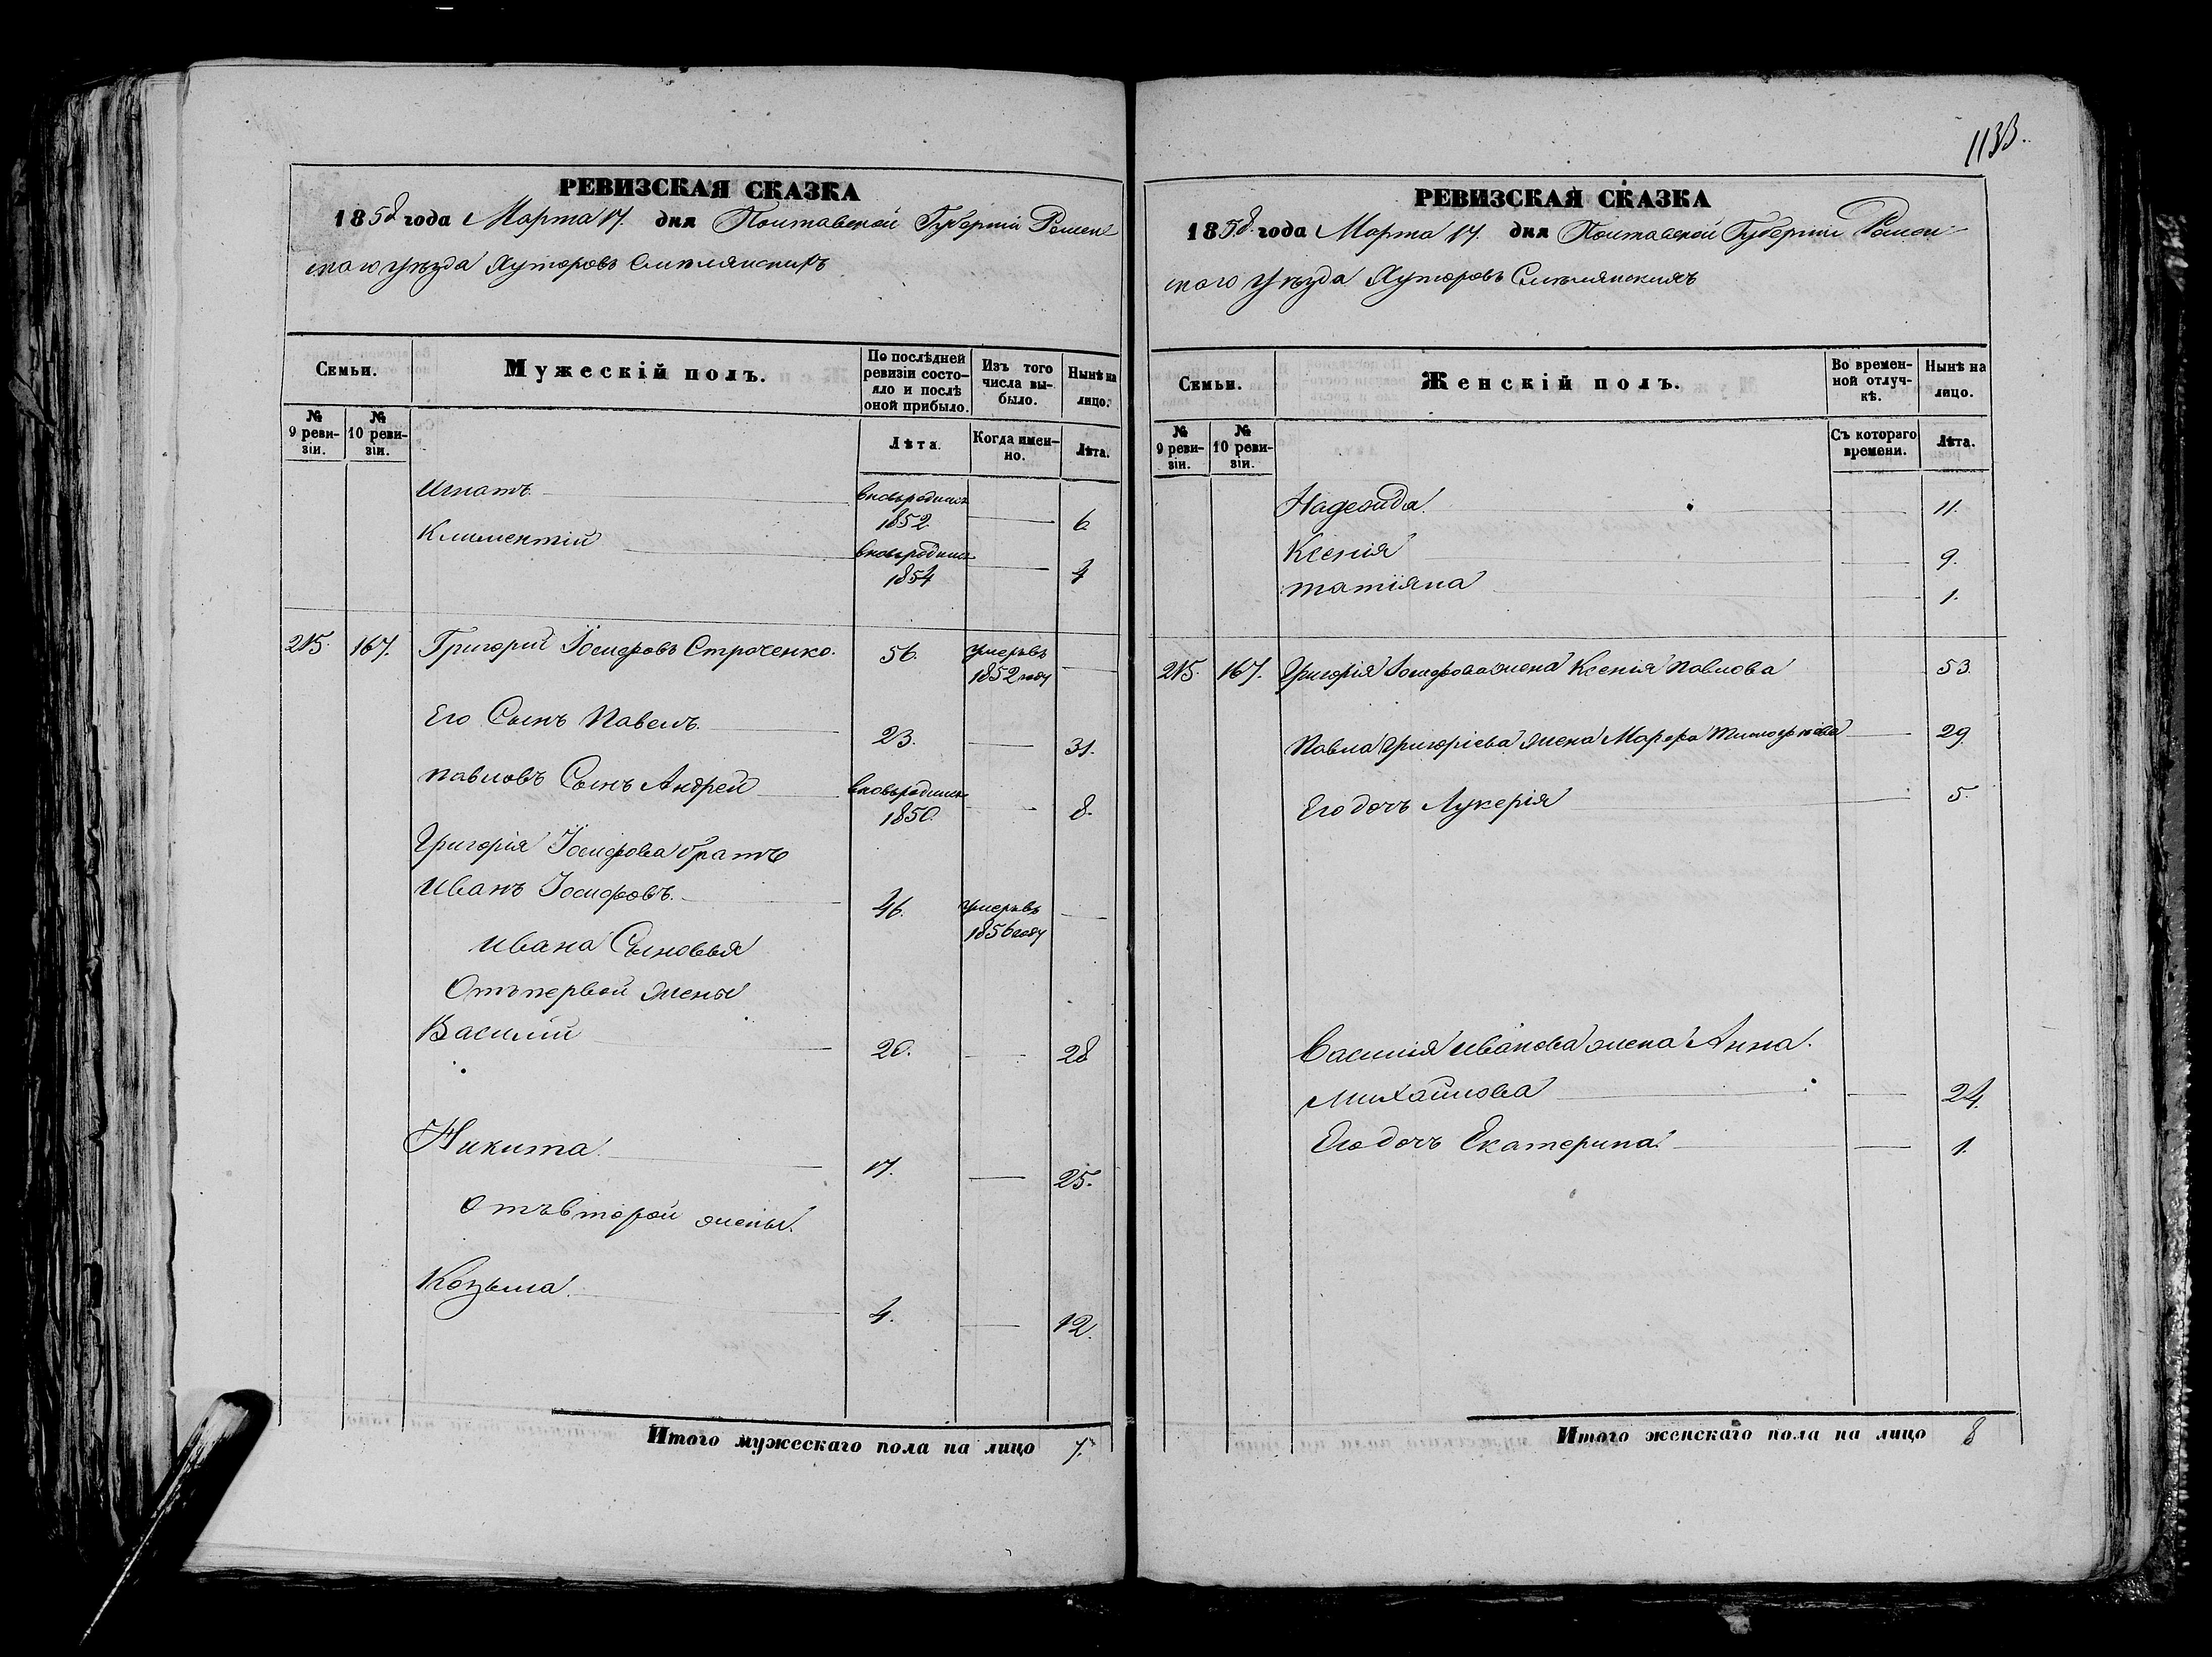 1133.
РЕВИЗСКАЯ СКАЗКА
1858 года Марта 17. дня Полтавской Губерніи Ромен
скаго уѣзда Хуторовъ Смѣлянскихъ
Семьи.
Мужескій полъ.
По послѣдней ревизіи состо-
яло и послѣ
оной прибыло.
Изъ того
числа вы-
было.
Нынѣ на
лицо.
№
9 реви-
зіи.
№
10 реви-
зіи.
Лѣта.
Когда имен-
но.
Лѣта.
Игнатъ вновьродился 1852 — 6
Климентій вновьродился 1854 — 4
215. 167. Григорій Іосифовъ Строченко. 56. умеръ въ 1852 году —
Его Сынъ Павелъ. 23. — 31.
Павловъ Сынъ Андрей вновьродился 1850. — 8.
Григорія Іосифова братъ
Иванъ Іосифовъ. 46. умеръ въ 1856 году —
Ивана Сыновья
Отъ первой жены
Василій 20. — 28
Никита. 17. — 25.
Отъ второй жены.
Козьма. 4. — 12.
Итого мужескаго пола на лицо 7.
РЕВИЗСКАЯ СКАЗКА
1858. года Марта 17. дня Полтавской Губерніи Ромен-
скаго уѣзда Хуторовъ Смѣлянскихъ
Семьи.
Женскій полъ.
Во времен-
ной отлуч-
кѣ.
Нынѣ на
лицо.
№
9 реви-
зіи.
№
10 реви-
зіи.
Съ котораго
времени.
Лѣта.
Надежда. — 11.
Ксенія — 9.
Татіяна — 1.
215. 167. Григорія Іосифова жена Ксенія Павлова 53.
Павла Григоріева жена Марфа Тимофѣева — 29.
Его дочь Лукерія — 5.
Василія Иванова жена Анна.
Михайлова — 24.
Его дочь Екатерина. — 1.
Итого женскаго пола на лицо 8